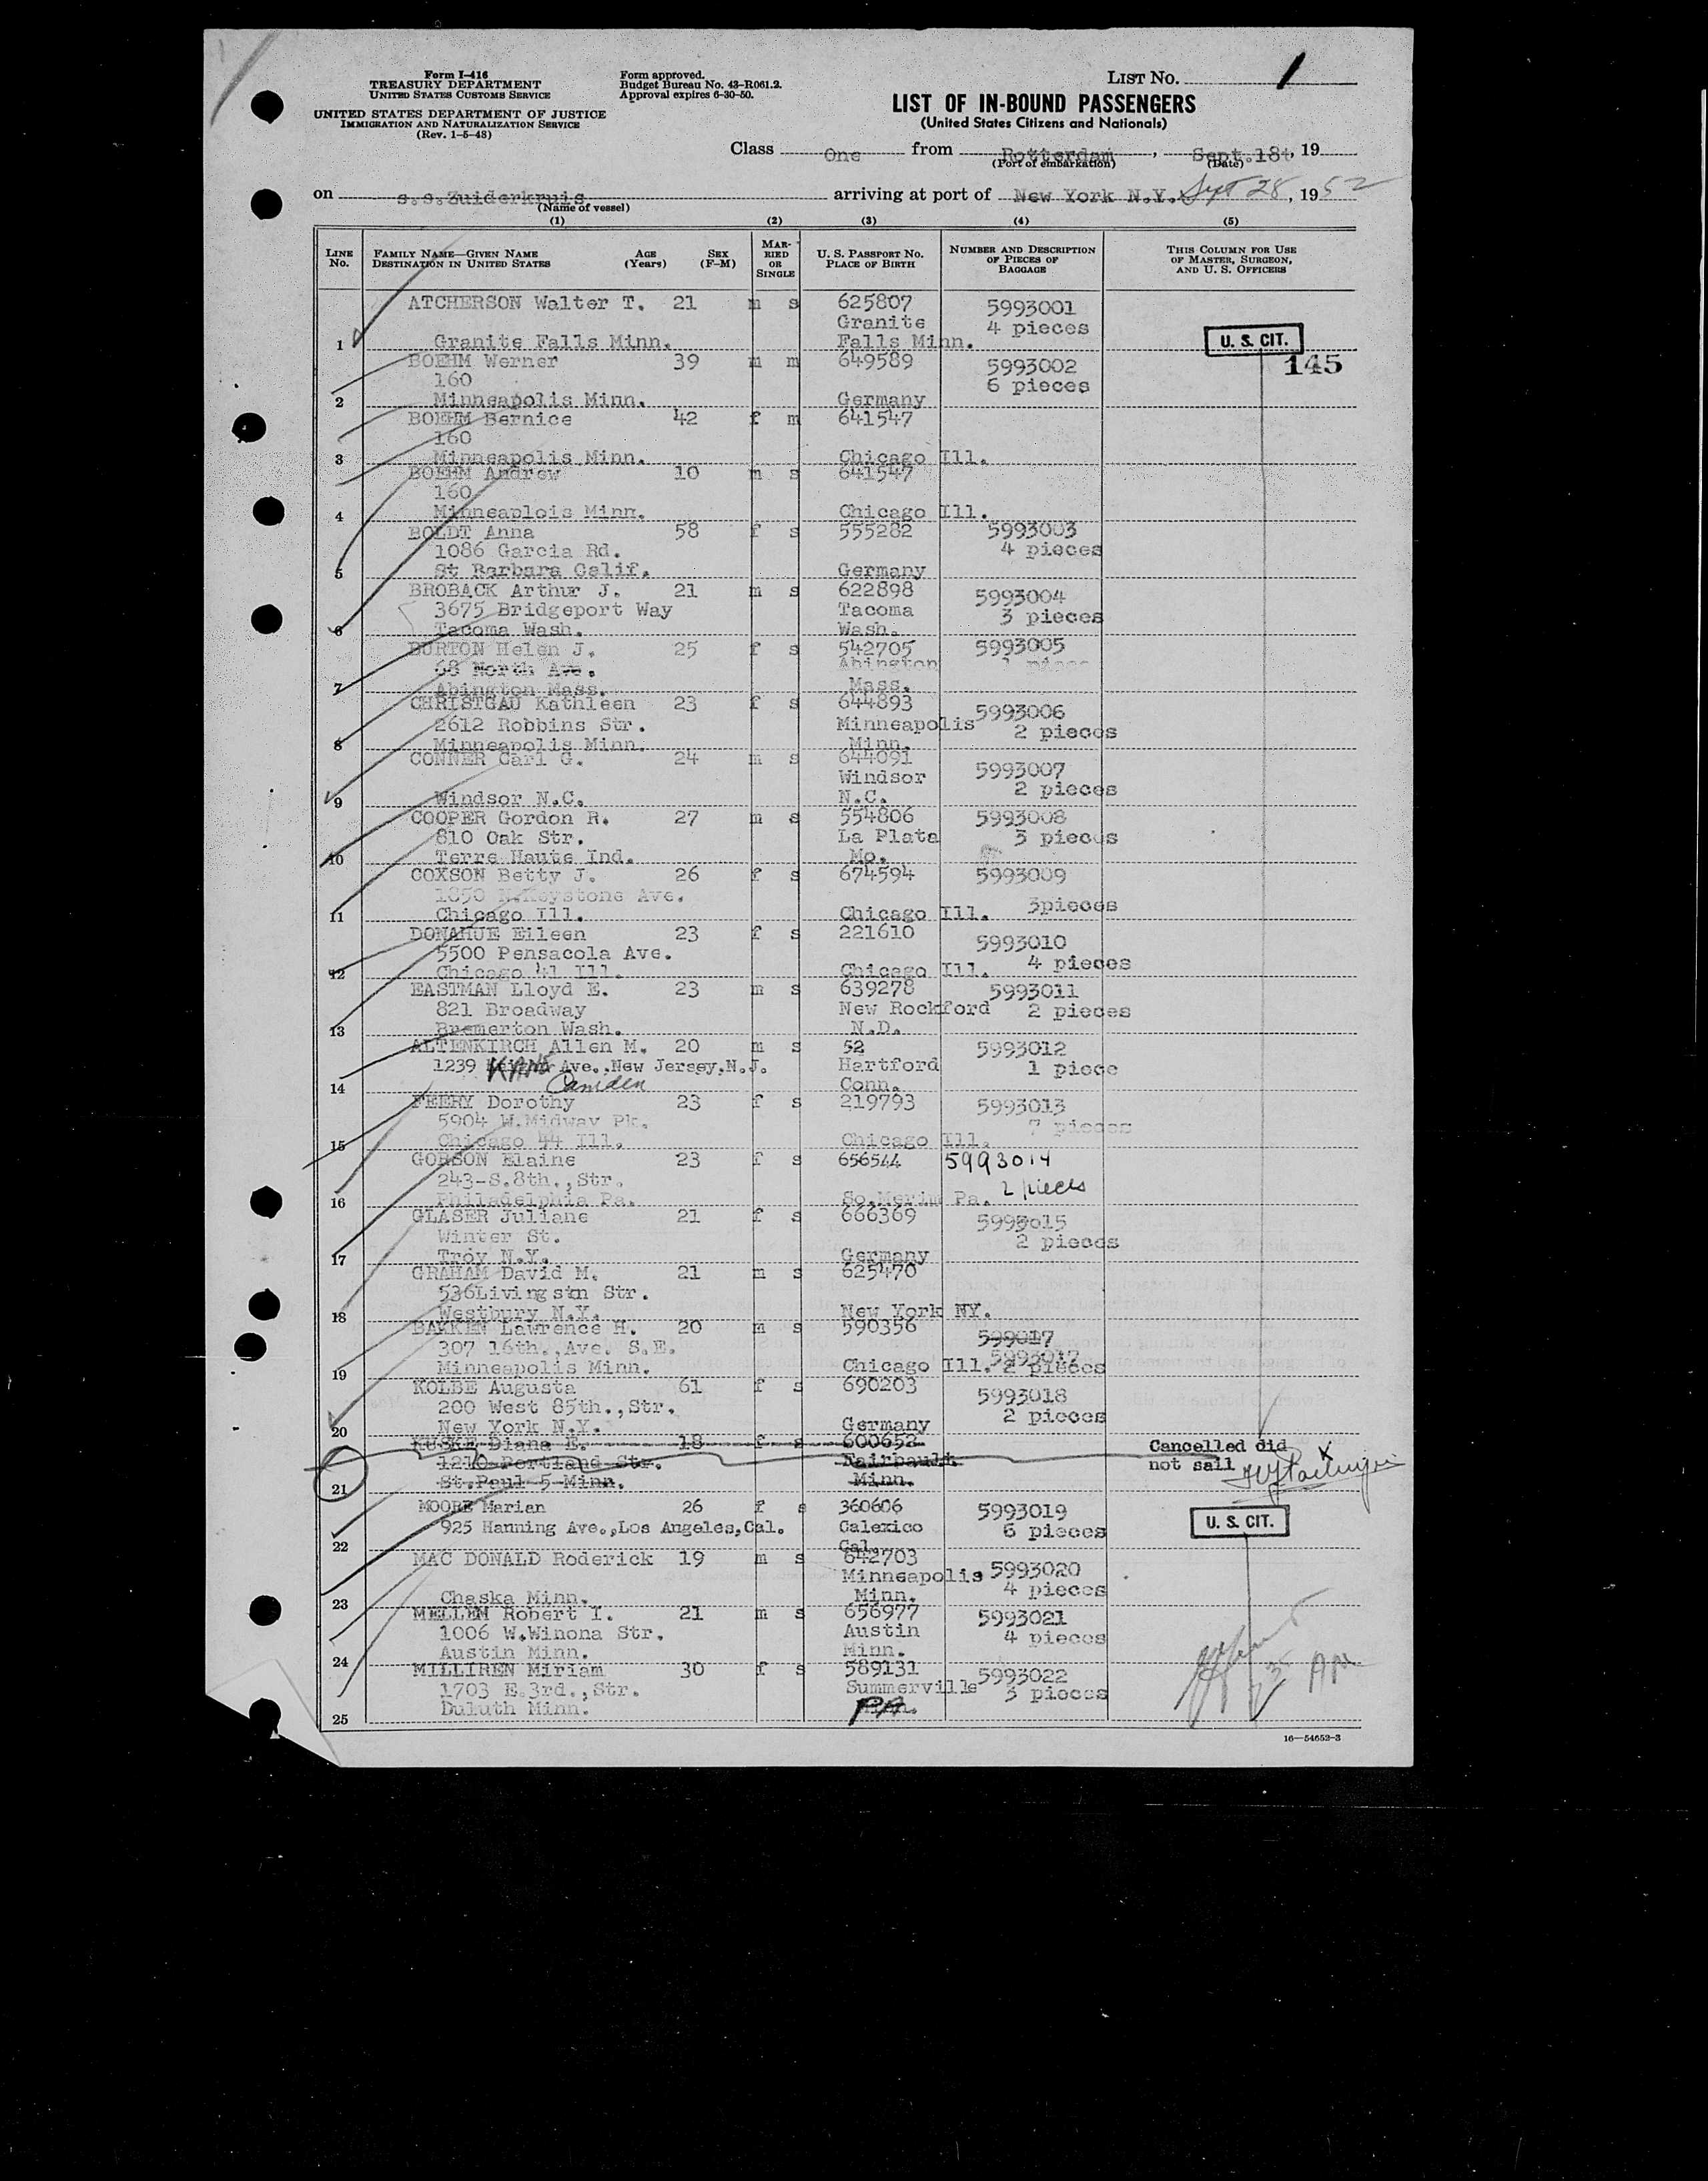 Form I-416
TREASURY DEPARTMENT
UNITED STATES CUSTOMS SERVICE
UNITED STATES DEPARTMENT OF JUSTICE
IMMIGRATION AND NATURALIZATION SERVICE
(Rev. 1-5-48)
Form approved.
Budget Bureau No. 43-R061.2.
Approval expires 6-30-50.
LIST NO. 1
LIST OF IN-BOUND PASSENGERS
(United States Citizens and Nationals)
Class One from Rotterdam, Sept. 18t, 19
(Port of embarkation) (Date)
on s.s.Zuiderkruis arriving at port of New York N.Y. Sept 28, 1952
(Name of vessel)
(1) (2) (3) (4) (5)
LINE NO. FAMILY NAME—GIVEN NAME DESTINATION IN UNITED STATES AGE (Years) SEX (F-M) MARRIED OR SINGLE U. S. PASSPORT NO. PLACE OF BIRTH NUMBER AND DESCRIPTION OF PIECES OF BAGGAGE THIS COLUMN FOR USE OF MASTER, SURGEON, AND U. S. OFFICERS
ATCHERSON Walter T. 21 m s 625807 5993001
Granite 4 pieces
1 Granite Falls Minn. Falls Minn. U. S. CIT.
BOEHM Werner 39 m m 649589 5993002 145
160 6 pieces
2 Minneapolis Minn. Germany
BOEHM Bernice 42 f m 641547
160
3 Minneapolis Minn. Chicago Ill.
BOEHM Andrew 10 m s 641547
160
4 Minneaplois Minn. Chicago Ill.
BOLDT Anna 58 f s 555282 5993003
1086 Garcia Rd. 4 pieces
5 St Barbara Calif. Germany
BROBACK Arthur J. 21 m s 622898 5993004
3675 Bridgeport Way Tacoma 3 pieces
6 Tacoma Wash. Wash.
BURTON Helen J. 25 f s 542705 5993005
68 North Ave. Abington 1 piece
7 Abington Mass. Mass.
CHRISTGAU Kathleen 23 f s 644893 5993006
2612 Robbins Str. Minneapolis 2 pieces
8 Minneapolis Minn. Minn.
CONNER Carl G. 24 m s 644091 5993007
Windsor 2 pieces
9 Windsor N.C. N.C.
COOPER Gordon R. 27 m s 554806 5993008
810 Oak Str. La Plata 3 pieces
10 Terre Haute Ind. Mo.
COXSON Betty J. 26 f s 674594 5993009
1850 N.Keystone Ave. 3pieces
11 Chicago Ill. Chicago Ill.
DONAHUE Eileen 23 f s 221610 5993010
5500 Pensacola Ave. 4 pieces
12 Chicago 41 Ill. Chicago Ill.
EASTMAN Lloyd E. 23 m s 639278 5993011
821 Broadway New Rockford 2 pieces
13 Bremerton Wash. N.D.
ALTENKIRCH Allen M. 20 m s 52 5993012
1239 KANE Ave.,New Jersey,N.J. Hartford 1 piece
14 Camden Conn.
FEERY Dorothy 23 f s 219793 5993013
5904 W.Midway Pk. 7 pieces
15 Chicago 44 Ill. Chicago Ill.
GOBSON Elaine 23 f s 656544 5993014
243-S.8th.,Str. 2 pieces
16 Philadelphia Pa. So.Merim Pa.
GLASER Juliane 21 f s 666369 5993015
Winter St. 2 pieces
17 Troy N.Y. Germany
GRAHAM David M. 21 m s 625470
536Livingstn Str.
18 Westbury N.Y. New York NY.
BAKKEN Lawrence H. 20 m s 590356 599017
307 16th.,Ave. S.E. 5993017
19 Minneapolis Minn. Chicago Ill. 2 pieces
KOLBE Augusta 61 f s 690203 5993018
200 West 85th.,Str. 2 pieces
20 New York N.Y. Germany
KUSKE Diana E. 18 f s 600652 Cancelled did
1210 Portland Str. Fairbault not sail
21 St.Paul 5 Minn. Minn.
MOORE Marian 26 f s 360606 5993019
925 Hanning Ave.,Los Angeles,Cal. Calexico 6 pieces U. S. CIT.
22 Cal.
MAC DONALD Roderick 19 m s 642703 5993020
Minneapolis 4 pieces
23 Chaska Minn. Minn.
MELLEM Robert I. 21 m s 656977 5993021
1006 W.Winona Str. Austin 4 pieces
24 Austin Minn. Minn.
MILLIREN Miriam 30 f s 589131 5993022
1703 E.3rd.,Str. Summerville 3 pieces
25 Duluth Minn. PA.
16—54652-3